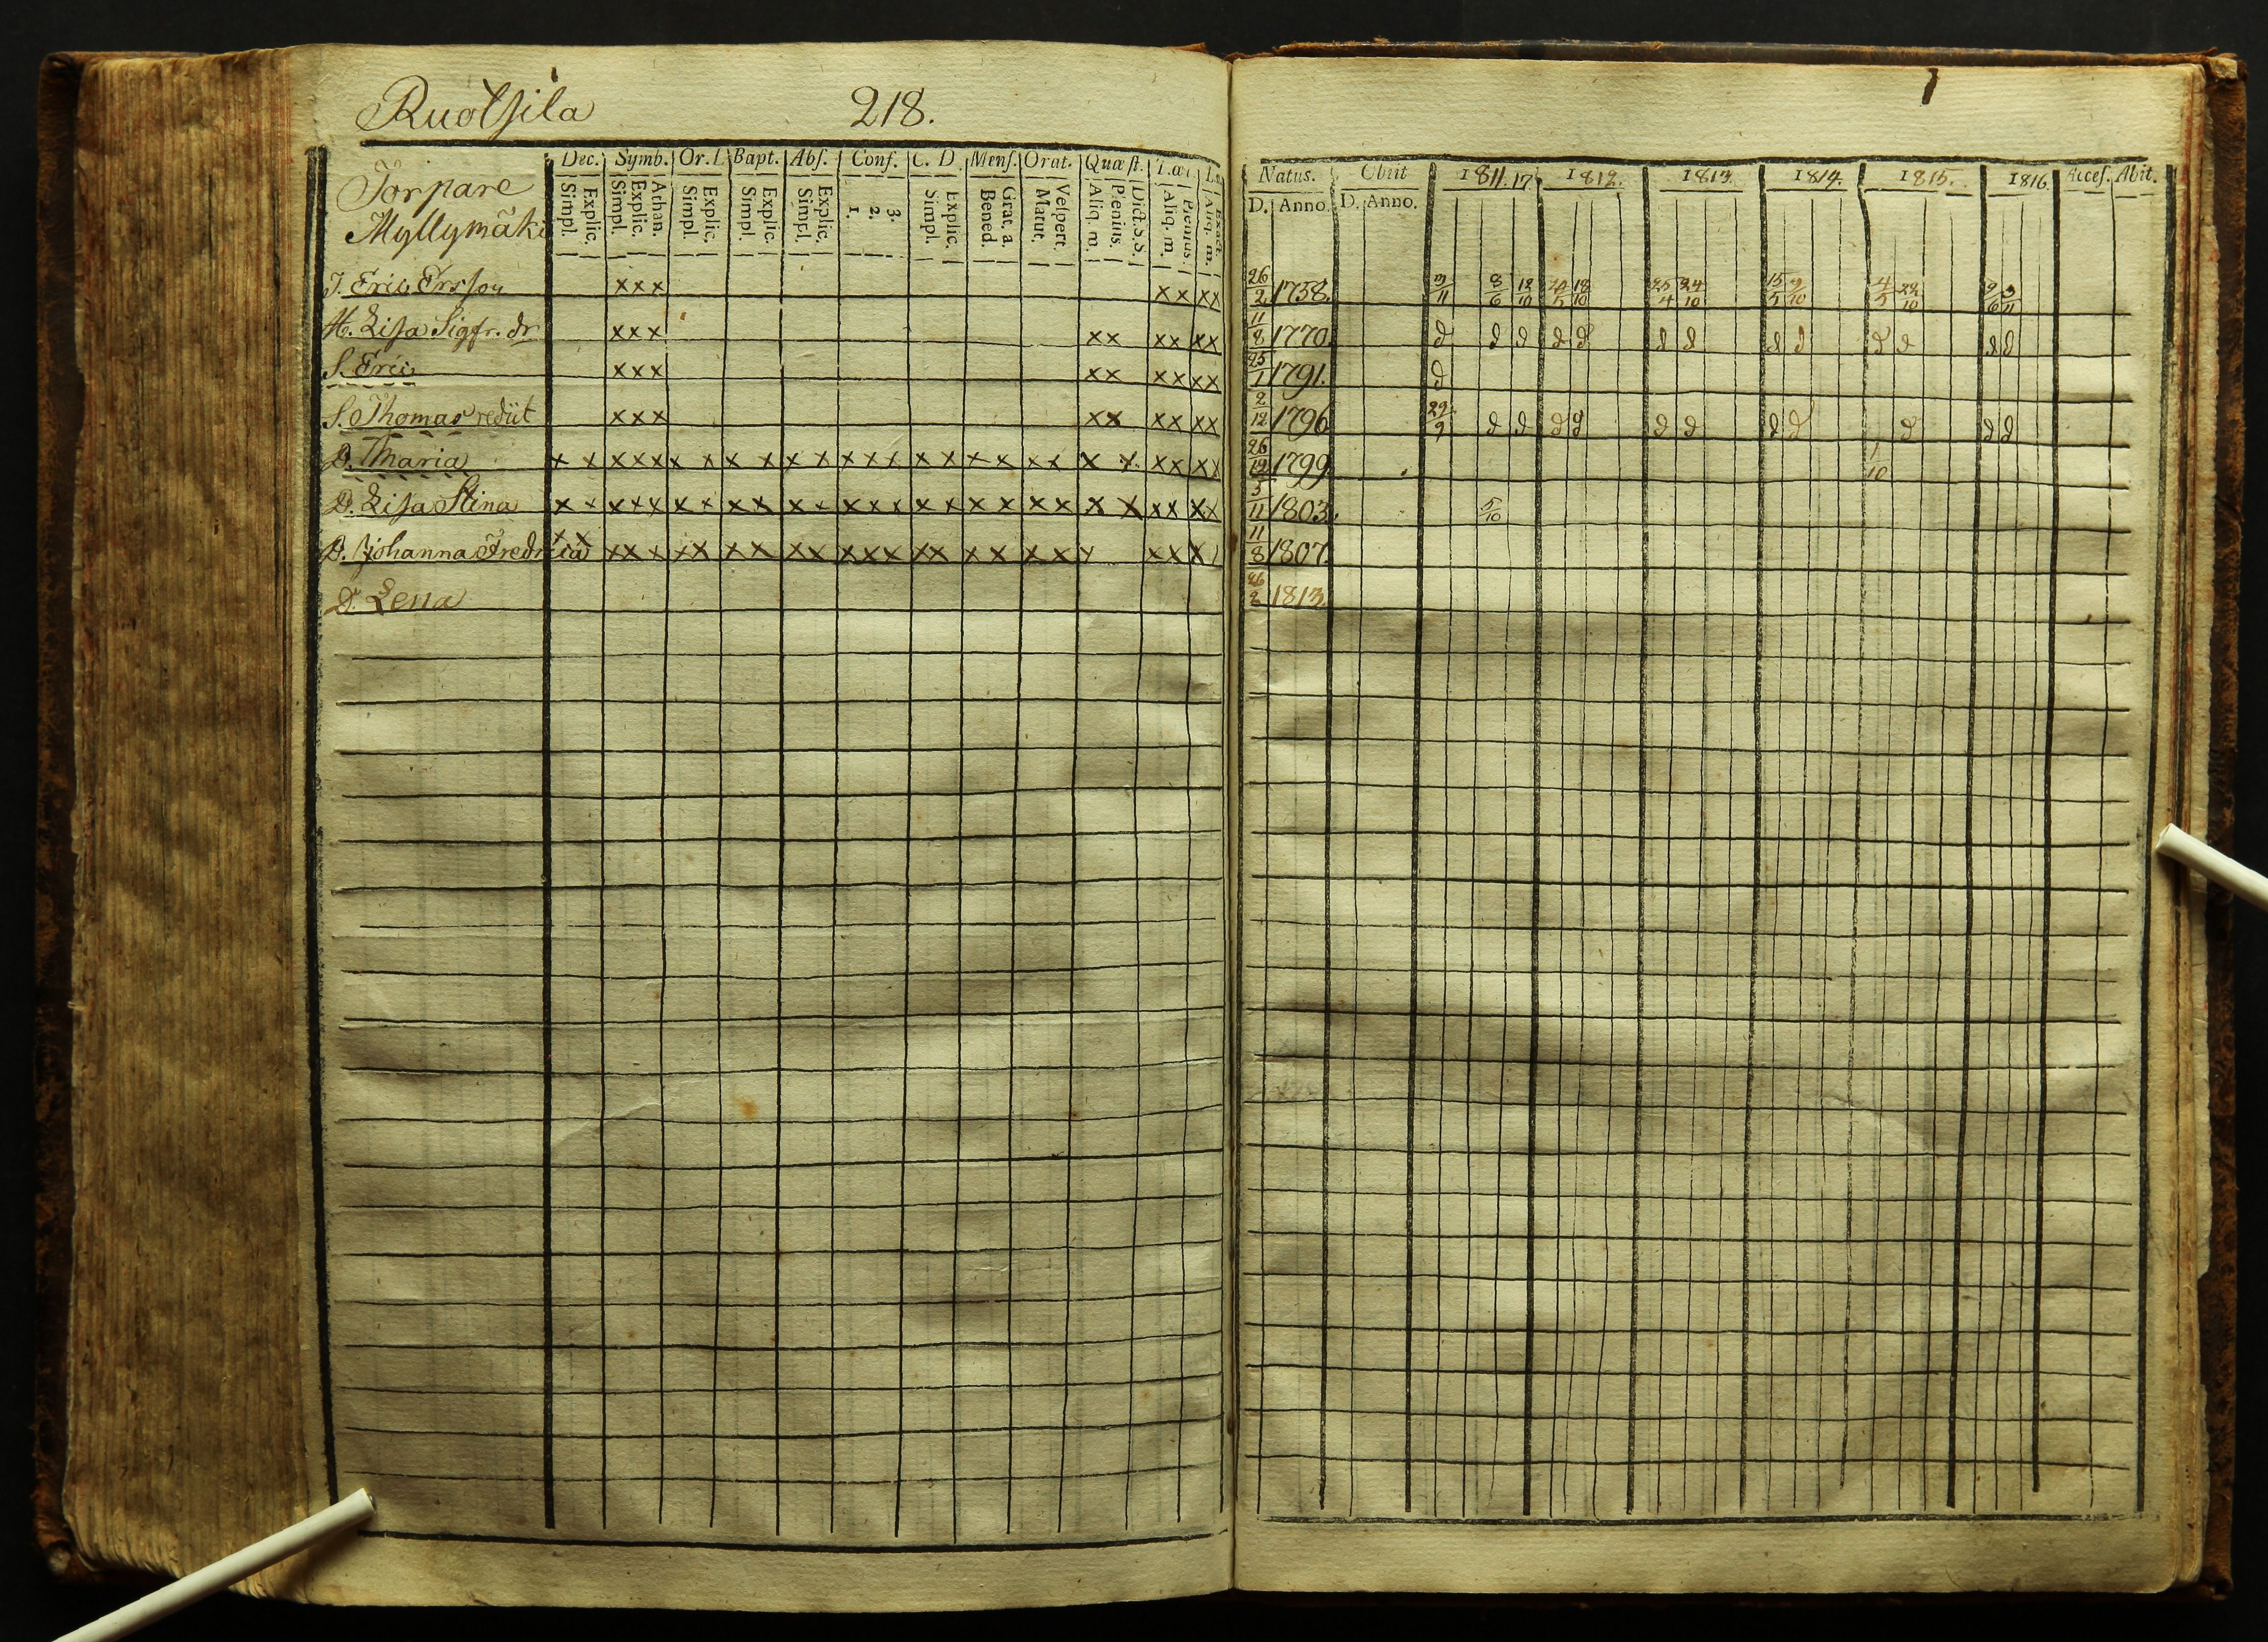 Ruotsila 218.
Torpare
Myllymäki
Dec. Symb. Or. D. Bapt. Abs. Conf. C. D. Mens. Orat. Quæst.
Simpl. Explic. Simpl. Explic. Athan. Simpl. Explic. Simpl. Explic. Simpl. Explic. 1. 2. 3. Simpl. Explic. Bened. Grat. a. Matut. Vespert. Aliq. m. Plenius. Dict. S. S. Aliq. m. Plenius. Aliq. m. Exact.
Natus. Obiit 1811. 17 1812. 1813. 1814. 1815. 1816. Acces. Abit.
D. Anno. D. Anno.
T. Eric Ersson xxx xx xx 26/2 1758. 3/11 8/6 18/10 18/10 25/4 24/10 15/5 9/10 4/5 22/10
H. Lisa Sigfr. dr. xxx xx xx xx 11/8 1770. d d d d d d d d d d d d d
S. Eric xxx xx xx xx 25/1 1791. d
S. Thomas rediit xxx xx xx xx 2/12 1796 29/9 d d d d d d d d d d d
D. Maria x x xxx x x x x x x xxx x x x x x x x x xx xx 26/12 1799 1/10
D. Lisa Stina x x xxx x x x x x x xxx x x x x x x x x xx xx 5/11 1803. 5/10
D. Johanna Fredrica x x xxx xx xx xx xxx xx x x xxx x xxx 11/8 1807.
D. Lena 26/2 1813